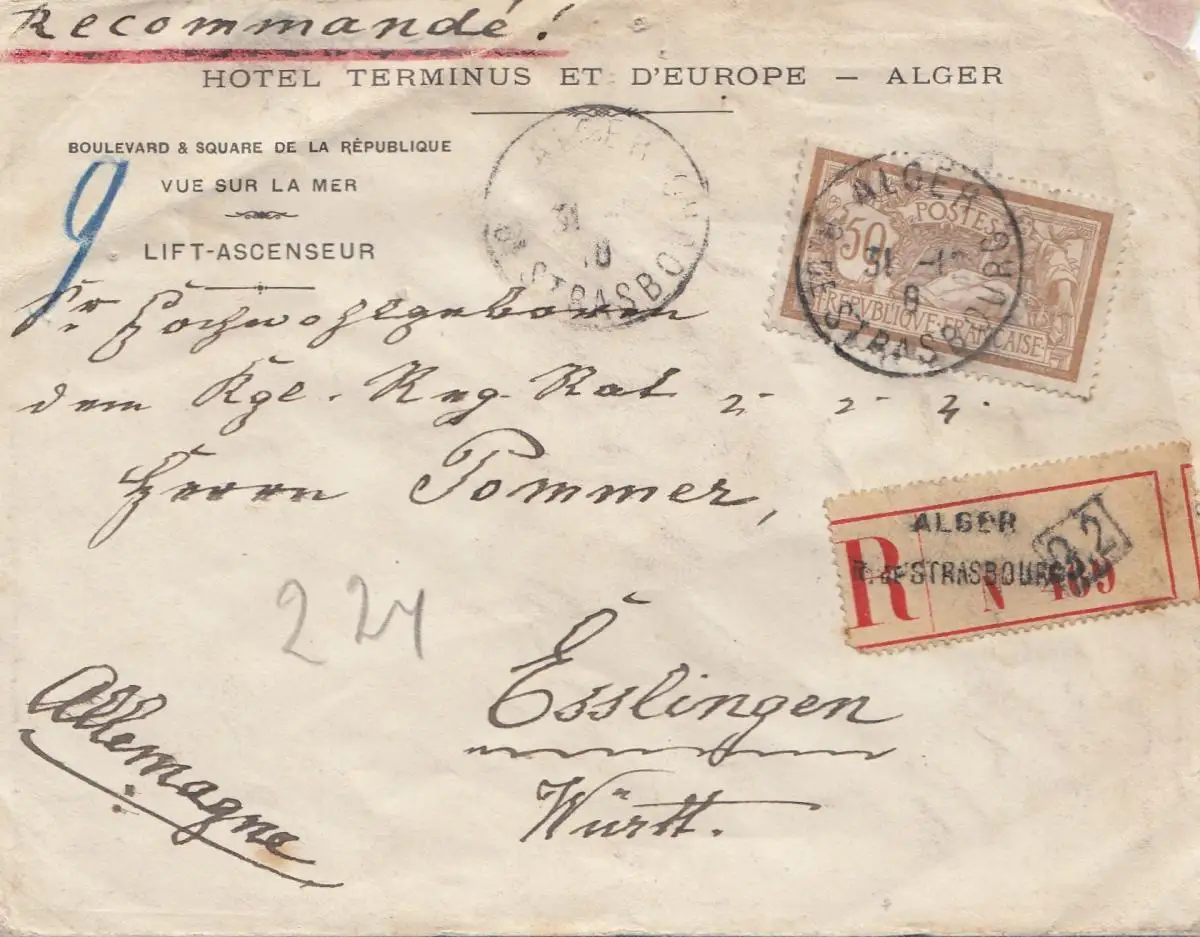 Recommandé!
HOTEL TERMINUS ET D'EUROPE — ALGER
BOULEVARD & SQUARE DE LA RÉPUBLIQUE
VUE SUR LA MER
LIFT-ASCENSEUR
9
ALGER
STRASBOURG
ALGER
R. DE STRASBOURG
31
8
50
POSTES
REPVBLIQVE FRANCAISE
Sr Hochwohlgeboren
dem Kgl. Reg. Rat
Herrn Pommer,
ALGER
R. DE STRASBOURG
R
N
22
224
Esslingen
Württ.
Allemagne